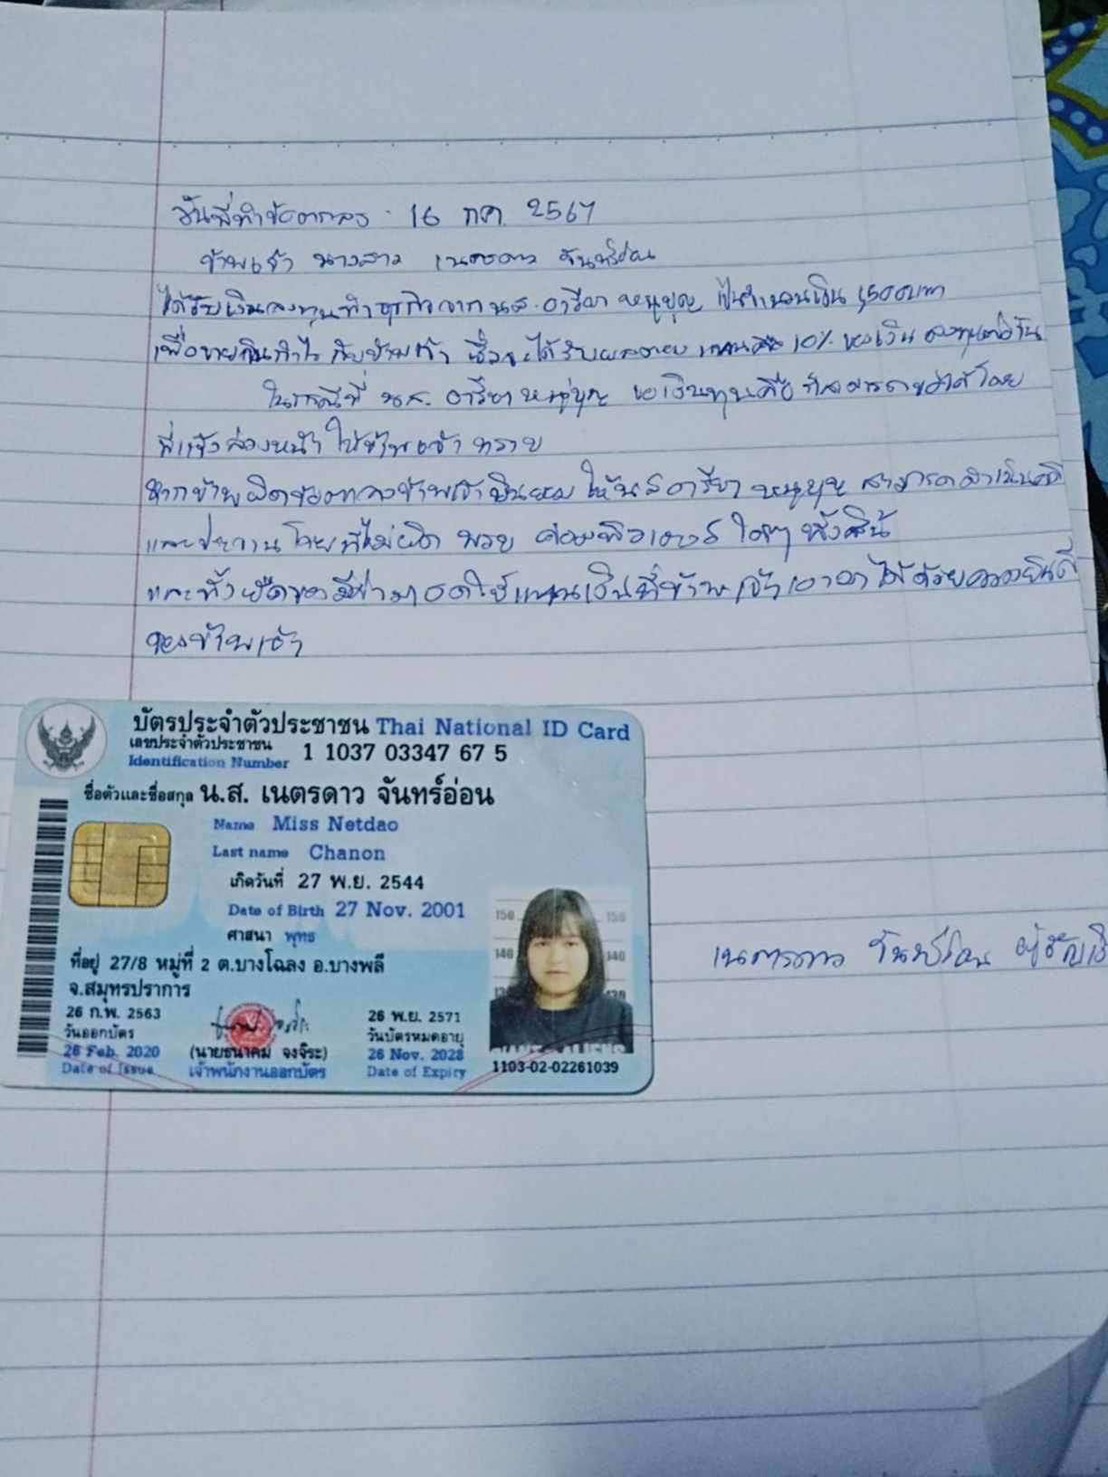 วันที่ทำข้อตกลง 16 กค. 2567
ข้าพเจ้า นางสาว เนตรดาว จันทร์อ่อน
ได้รับเงินลงทุนทำธุรกิจจาก น.ส. อารียา หนูบุญ เป็นจำนวนเงิน 1,500 บาท
เพื่อขายกินกำไร กับข้าพเจ้า ซึ่งจะได้รับผลตอบแทนคือ 10% ของเงินลงทุนต่อวัน
ในกรณีที่ น.ส. อารียา หนูบุญ ขอเงินทุนคืน ก็สามารถขอได้โดย
ที่แจ้งล่วงหน้า ให้ข้าพเจ้า ทราบ
หากข้าพผิดข้อตกลงข้าพเจ้ายินยอม ให้ น.ส อารียา หนูบุญ สามารถดำเนินคดี
และประจาน โดยที่ไม่ผิด พรบ คอมพิวเตอร์ ใดๆ ทั้งสิ้น
และทั้งยึดของมีค่ามาชดใช้แทนเงินที่ข้าพเจ้าเอามาได้ด้วยความยินดี
ของข้าพเจ้า
บัตรประจำตัวประชาชน Thai National ID Card
เลขประจำตัวประชาชน
Identification Number 1 1037 03347 67 5
ชื่อตัวและชื่อสกุล น.ส. เนตรดาว จันทร์อ่อน
Name Miss Netdao
Last name Chanon
เกิดวันที่ 27 พ.ย. 2544
Date of Birth 27 Nov. 2001
ศาสนา พุทธ
ที่อยู่ 27/8 หมู่ที่ 2 ต.บางโฉลง อ.บางพลี
จ.สมุทรปราการ
26 ก.พ. 2563
วันออกบัตร
26 Feb. 2020
Date of Issue
(นายธนาคม จงจิระ)
เจ้าพนักงานออกบัตร
26 พ.ย. 2571
วันบัตรหมดอายุ
26 Nov. 2028
Date of Expiry
150 150
140 140
1103-02-02261039
เนตรดาว จันทร์อ่อน